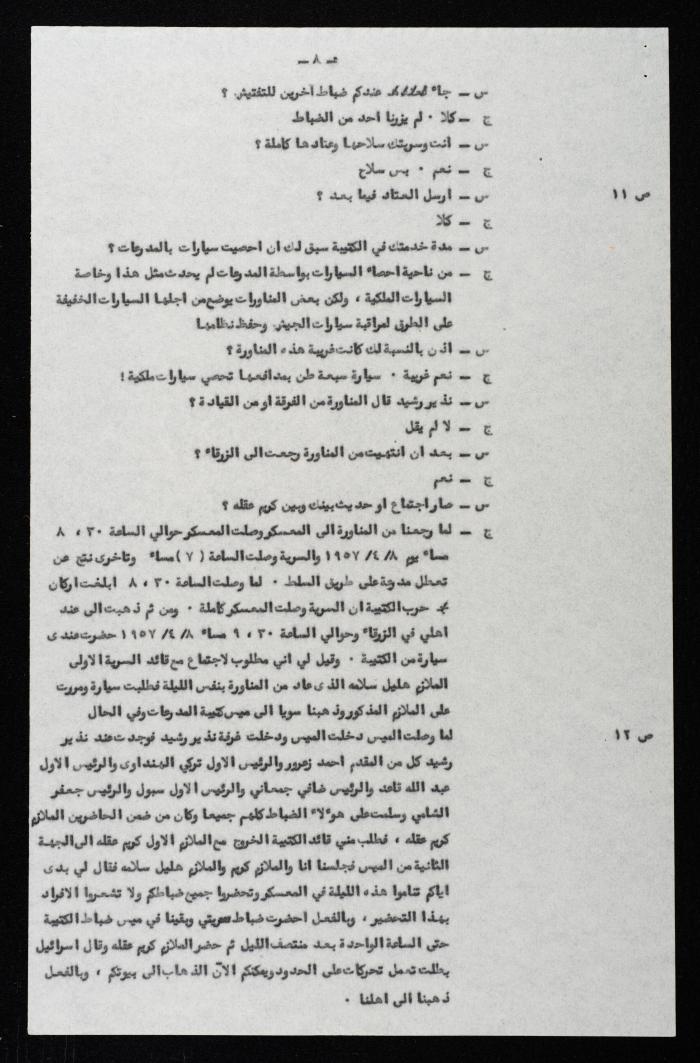 ـ ٨ ـ
س ـ جاء عندكم ضباط آخرين للتفتيش ؟
ج ـ كلا ٠ لم يزرنا احد من الضباط
س ـ انت وسريتك سلاحها وعتادها كاملة ؟
ج ـ نعم ٠ بس سلاح
ص ١١ س ـ ارسل العتاد فيما بعد ؟
ج ـ كلا
س ـ مدة خدمتك في الكتيبة سبق لك ان احصيت سيارات بالمدرعات ؟
ج ـ من ناحية احصاء السيارات بواسطة المدرعات لم يحدث مثل هذا وخاصة
السيارات الملكية ، ولكن بعض المناورات يوضع من اجلها السيارات الخفيفة
على الطرق لمراقبة سيارات الجيش وحفظ نظامها
س ـ اذن بالنسبة لك كانت غريبة هذه المناورة ؟
ج ـ نعم غريبة ٠ سيارة سبعة طن بمدافعها تحصي سيارات ملكية !
س ـ نذير رشيد قال المناورة من الفرقة او من القيادة ؟
ج ـ لا لم يقل
س ـ بعد ان انتهيت من المناورة رجعت الى الزرقاء ؟
ج ـ نعم
س ـ صار اجتماع او حديث بينك وبين كريم عقله ؟
ج ـ لما رجعنا من المناورة الى المعسكر وصلت المعسكر حوالي الساعة ٣٠ ، ٨
مساء يوم ٨/ ٤/ ١٩٥٧ والسرية وصلت الساعة ( ٧ ) مساء وتاخرى نتج عن
تعطل مدرعة على طريق السلط ٠ لما وصلت الساعة ٣٠ ، ٨ ابلغت اركان
حرب الكتيبة ان السرية وصلت المعسكر كاملة ٠ ومن ثم ذهبت الى عند
اهلي في الزرقاء وحوالي الساعة ٣٠ ، ٩ مساء ٨/ ٤/ ١٩٥٧ حضرت عندى
سيارة من الكتيبة ٠ وقيل لي اني مطلوب لاجتماع مع قائد السرية الاولى
الملازم هليل سلامه الذى عاد من المناورة بنفس الليلة فطلبت سيارة ومررت
على الملازم المذكور وذهبنا سويا الى ميس كتيبة المدرعات وفي الحال
ص ١٢ لما وصلت الميس دخلت الميس ودخلت غرفة نذير رشيد فوجدت عند نذير
رشيد كل من المقدم احمد زعرور والرئيس الاول تركي الهنداوى والرئيس الاول
عبد الله قاعد والرئيس ضافي جمعاني والرئيس الاول سبول والرئيس جعفر
الشامي وسلمت على هوءلاء الضباط كلهم جميعا وكان من ضمن الحاضرين الملازم
كريم عقله ، فطلب مني قائد الكتيبة الخروج مع الملازم الاول كريم عقله الى الجهة
الثانية من الميس فجلسنا انا والملازم كريم والملازم هليل سلامه فقال لي بدى
اياكم تناموا هذه الليلة في المعسكر وتحضروا جميع ضباطكم ولا تشعروا الافراد
بهذا التحضير ، وبالفعل احضرت ضباط سريتي وبقينا في ميس ضباط الكتيبة
حتى الساعة الواحدة بعد منتصف الليل ثم حضر الملازم كريم عقله وقال اسرائيل
بطلت تعمل تحركات على الحدود ويمكنكم الآن الذهاب الى بيوتكم ، وبالفعل
ذهبنا الى اهلنا ٠